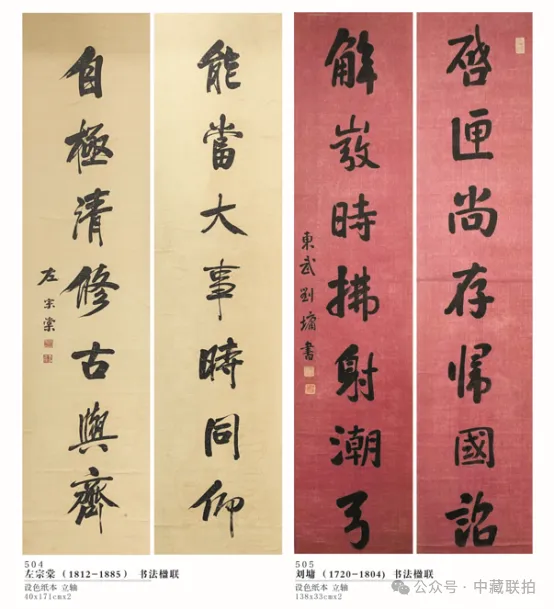 能當大事時同仰
自極清修古與齊
左宗棠
504
左宗棠（1812-1885） 书法楹联
设色纸本 立轴
40x171cmx2
啓匣尚存歸國詔
解嚴時拂射潮弓
東武劉墉書
505
刘墉（1720-1804) 书法楹联
设色纸本 立轴
138x33cmx2
公众号·中藏联拍